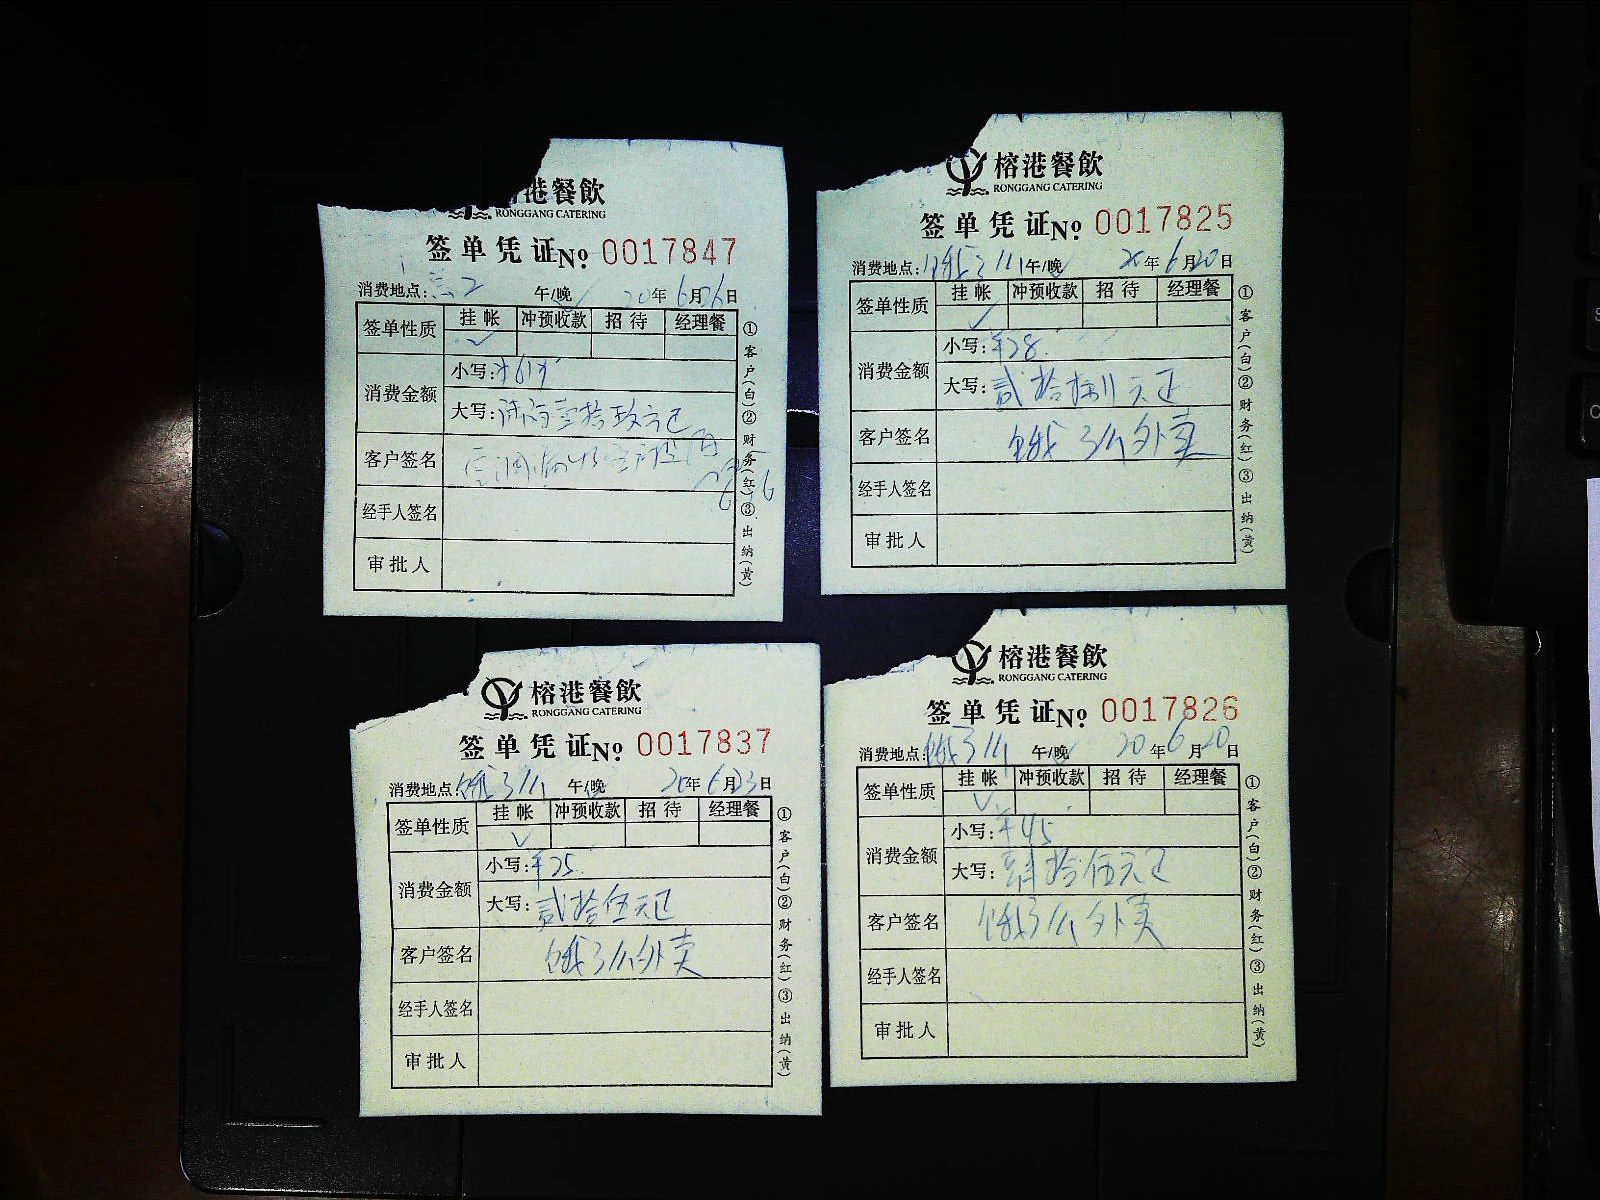 港餐飲
RONGGANG CATERING
签单凭证No 0017847
消费地点: 午/晚 20年6月26日
签单性质 挂帐 冲预收款 招待 经理餐
消费金额 小写:¥619
大写:陆佰壹拾玖元正
客户签名
经手人签名
审批人
①客户(白)②财务(红)③出纳(黄)
榕港餐飲
RONGGANG CATERING
签单凭证No 0017825
消费地点:饿了么 午/晚 20年6月20日
签单性质 挂帐 冲预收款 招待 经理餐
消费金额 小写:¥28
大写:贰拾捌元正
客户签名 饿了么外卖
经手人签名
审批人
①客户(白)②财务(红)③出纳(黄)
榕港餐飲
RONGGANG CATERING
签单凭证No 0017837
消费地点:饿了么 午/晚 20年6月23日
签单性质 挂帐 冲预收款 招待 经理餐
消费金额 小写:¥25
大写:贰拾伍元正
客户签名 饿了么外卖
经手人签名
审批人
①客户(白)②财务(红)③出纳(黄)
榕港餐飲
RONGGANG CATERING
签单凭证No 0017826
消费地点:饿了么 午/晚 20年6月20日
签单性质 挂帐 冲预收款 招待 经理餐
消费金额 小写:¥45
大写:肆拾伍元正
客户签名 饿了么外卖
经手人签名
审批人
①客户(白)②财务(红)③出纳(黄)